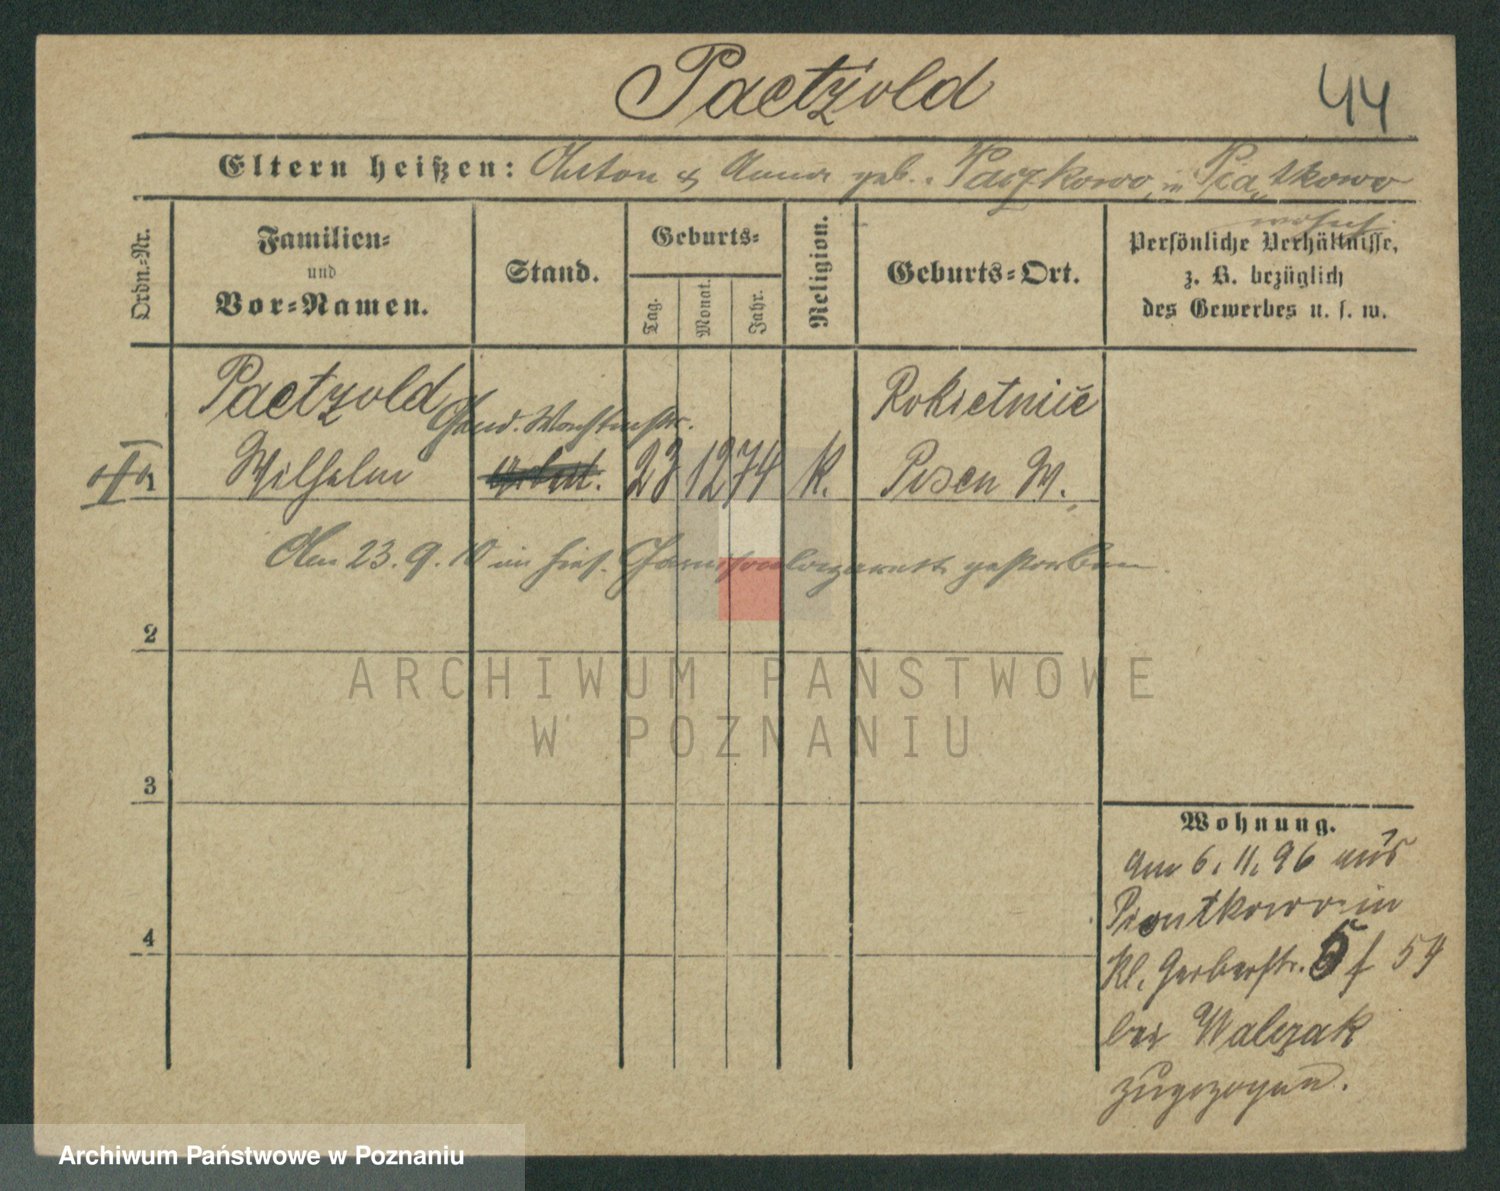 Paetzold
44
Eltern heißen: Anton & Anna geb. Paczkowo, in Piątkowo
wohnh.
Ordn.-Nr.
Familien-
und
Vor-Namen.
Stand.
Geburts-
Tag.
Monat.
Jahr.
Religion.
Geburts-Ort.
Persönliche Verhältnisse,
z. B. bezüglich
des Gewerbes u. s. w.
Paetzold
Wilhelm
Gend. Wachtmstr.
Arbeit.
23 12 74
K.
Rokietnice
Posen W.
Am 23. 9. 10 im hies. Garnisonlazarett gestorben.
2
3
4
Wohnung.
am 6. 11. 96 aus
Piontkowo in
Kl. Gerberstr. 5 f 59
bei Walczak
zugezogen.
ARCHIWUM PAŃSTWOWE
W POZNANIU
Archiwum Państwowe w Poznaniu